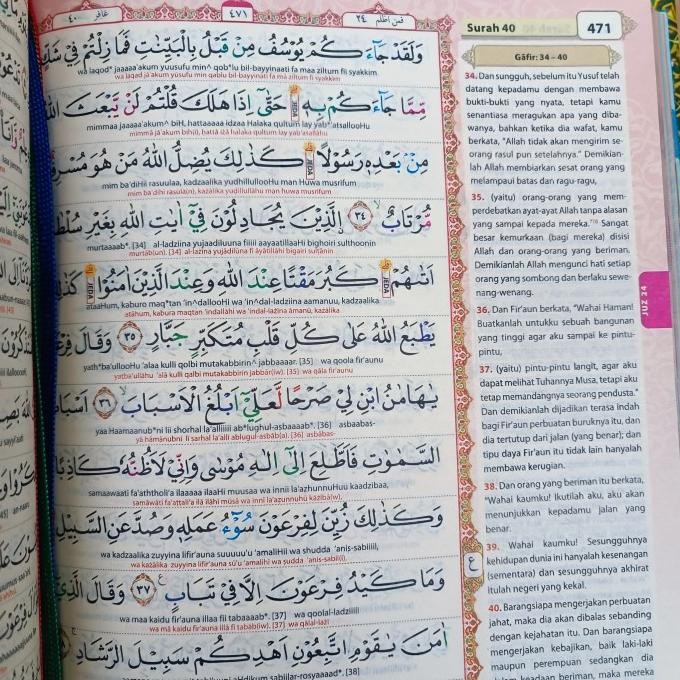 غافر ٤٠
٤٧١
فمن اظلم ٢٤
Surah 40
471
Gāfir: 34 – 40
وَلَقَدْ جَاۤءَكُمْ يُوْسُفُ مِنْ قَبْلُ بِالْبَيِّنٰتِ فَمَا زِلْتُمْ فِيْ شَكٍّ
wa laqod* jaaaaa'akum yuusufu min^ qob*lu bil-bayyinaati fa maa ziltum fii syakkim
wa laqad jā'akum yūsufu min qablu bil-bayyināti fa mā ziltum fī syakkim
مِّمَّا جَاۤءَكُمْ بِهٖ حَتّٰىٓ اِذَا هَلَكَ قُلْتُمْ لَنْ يَّبْعَثَ اللّٰهُ
mimmaa jaaaaa'akum^ biH, hattaaaaa idzaa Halaka qultum lay yab*'atsallooHu
mimmā jā'akum bih(ī), hattā iżā halaka qultum lay yab'aṡallāhu
مِنْۢ بَعْدِهٖ رَسُوْلًا كَذٰلِكَ يُضِلُّ اللّٰهُ مَنْ هُوَ مُسْرِفٌ
mim ba'diHii rasuulaa, kadzaalika yudhillullooHu man Huwa musrifum
mim ba'dihī rasūlā(n), każālika yudillullāhu man huwa musrifum
مُّرْتَابٌ ٣٤ الَّذِيْنَ يُجَادِلُوْنَ فِيْٓ اٰيٰتِ اللّٰهِ بِغَيْرِ سُلْطٰنٍ
murtaaaab*. [34] al-ladziina yujaadiluuna fiiiii aayaatillaaHi bighoiri sulthoonin
murtāb(un). [34] al-lażīna yujādilūna fī āyātillāhi bigairi sulṭānin
اَتٰىهُمْ كَبُرَ مَقْتًا عِنْدَ اللّٰهِ وَعِنْدَ الَّذِيْنَ اٰمَنُوْا كَذٰلِكَ
ataaHum, kaburo maq*tan 'in^dallooHi wa 'in^dal-ladziina aamanuu, kadzaalika
atāhum, kabura maqtan 'indallāhi wa 'indal-lażīna āmanū, każālika
يَطْبَعُ اللّٰهُ عَلٰى كُلِّ قَلْبِ مُتَكَبِّرٍ جَبَّارٍ ٣٥ وَقَالَ فِرْعَوْنُ
yath*ba'ullooHu 'alaa kulli qolbi mutakabbirin^ jabbaaaar. [35] wa qoola fir'aunu
yaṭba'ullāhu 'alā kulli qalbi mutakabbirin jabbār(iw). [35] wa qāla fir'aunu
يٰهَامٰنُ ابْنِ لِيْ صَرْحًا لَّعَلِّيْٓ اَبْلُغُ الْاَسْبَابَ ٣٦ اَسْبَابَ
yaa Haamaanub*ni lii shorhal la'alliiiii ab*lughul-asbaaaab*. [36] asbaabas-
yā hāmānubni lī sarḥal la'allī ablugul-asbāb(a). [36] asbābas-
السَّمٰوٰتِ فَاَطَّلِعَ اِلٰٓى اِلٰهِ مُوْسٰى وَاِنِّيْ لَاَظُنُّهٗ كَاذِبًا
samaawaati fa'aththoli'a ilaaaaa ilaaHi muusaa wa innii la'azhunnuHuu kaadzibaa,
samāwāti fa'aṭṭali'a ilā ilāhi mūsā wa innī la'aẓunnuhū kāżibā(w),
وَكَذٰلِكَ زُيِّنَ لِفِرْعَوْنَ سُوْۤءُ عَمَلِهٖ وَصُدَّ عَنِ السَّبِيْلِ
wa kadzaalika zuyyina lifir'auna suuuuu'u 'amaliHii wa shudda 'anis-sabiiiil,
wa każālika zuyyina lifir'auna sū'u 'amalihī wa ṣudda 'anis-sabīl(i),
وَمَا كَيْدُ فِرْعَوْنَ اِلَّا فِيْ تَبَابٍ ٣٧ وَقَالَ الَّذِيْٓ
wa maa kaidu fir'auna illaa fii tabaaaab*. [37] wa qoolal-ladziiiii
wa mā kaidu fir'auna illā fī tabāb(iw). [37] wa qālal-lażī
اٰمَنَ يٰقَوْمِ اتَّبِعُوْنِ اَهْدِكُمْ سَبِيْلَ الرَّشَادِ
34. Dan sungguh, sebelum itu Yusuf telah
datang kepadamu dengan membawa
bukti-bukti yang nyata, tetapi kamu
senantiasa meragukan apa yang diba-
wanya, bahkan ketika dia wafat, kamu
berkata, "Allah tidak akan mengirim se-
orang rasul pun setelahnya." Demikian-
lah Allah membiarkan sesat orang yang
melampaui batas dan ragu-ragu,
35. (yaitu) orang-orang yang mem-
perdebatkan ayat-ayat Allah tanpa alasan
yang sampai kepada mereka. Sangat
besar kemurkaan (bagi mereka) disisi
Allah dan orang-orang yang beriman.
Demikianlah Allah mengunci hati setiap
orang yang sombong dan berlaku sewe-
nang-wenang.
36. Dan Fir'aun berkata, "Wahai Haman!
Buatkanlah untukku sebuah bangunan
yang tinggi agar aku sampai ke pintu-
pintu,
37. (yaitu) pintu-pintu langit, agar aku
dapat melihat Tuhannya Musa, tetapi aku
tetap memandangnya seorang pendusta."
Dan demikianlah dijadikan terasa indah
bagi Fir'aun perbuatan buruknya itu, dan
dia tertutup dari jalan (yang benar); dan
tipu daya Fir'aun itu tidak lain hanyalah
membawa kerugian.
38. Dan orang yang beriman itu berkata,
"Wahai kaumku! Ikutilah aku, aku akan
menunjukkan kepadamu jalan yang
benar.
39. Wahai kaumku! Sesungguhnya
kehidupan dunia ini hanyalah kesenangan
(sementara) dan sesungguhnya akhirat
itulah negeri yang kekal.
40. Barangsiapa mengerjakan perbuatan
jahat, maka dia akan dibalas sebanding
dengan kejahatan itu. Dan barangsiapa
mengerjakan kebajikan, baik laki-laki
maupun perempuan sedangkan dia
dalam keadaan beriman, maka mereka
JUZ 24